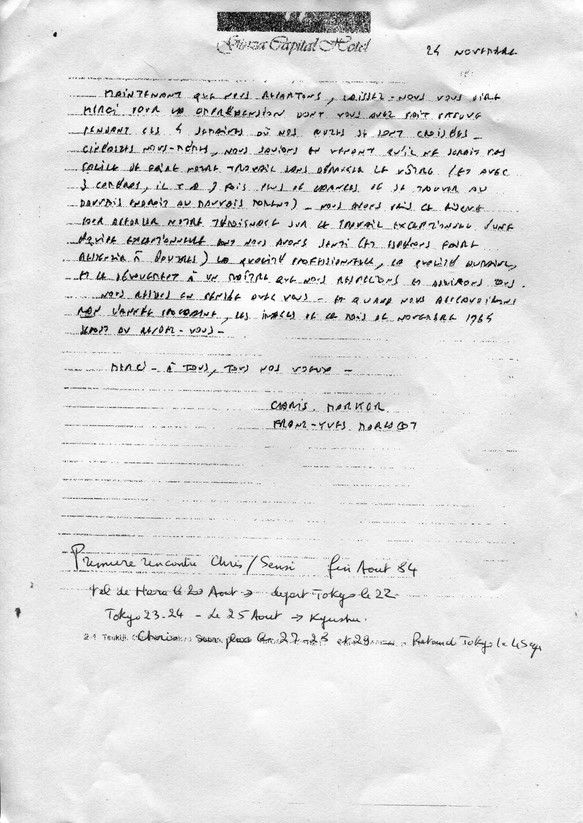 Ginza Capital Hotel
24 NOVEMBRE
MAINTENANT QUE NOUS REPARTONS, LAISSEZ-NOUS VOUS DIRE
MERCI POUR LA COMPRÉHENSION DONT VOUS AVEZ FAIT PREUVE
PENDANT CES 4 SEMAINES OÙ NOS ROUTES SE SONT CROISÉES -
CINÉASTES NOUS-MÊMES, NOUS SAVIONS EN VENANT QU'IL NE SERAIT PAS
FACILE DE FAIRE NOTRE TRAVAIL SANS DÉRANGER LE VÔTRE (ET AVEC
3 CAMÉRAS, IL Y A 3 FOIS PLUS DE CHANCES DE SE TROUVER AU
MAUVAIS ENDROIT AU MAUVAIS MOMENT) - NOUS AVONS PRIS CE RISQUE
POUR APPORTER NOTRE TÉMOIGNAGE SUR LE TRAVAIL EXCEPTIONNEL D'UNE
ÉQUIPE EXCEPTIONNELLE DONT NOUS AVONS SENTI (ET ESPÉRONS FAIRE
RESSENTIR À D'AUTRES) LA QUALITÉ PROFESSIONNELLE, LA QUALITÉ HUMAINE,
ET LE DÉVOUEMENT À UN MAÎTRE QUE NOUS RESPECTONS ET ADMIRONS TOUS.
NOUS RESTONS EN PENSÉE AVEC VOUS - ET QUAND NOUS APPROCHERONS
L'ANNÉE PROCHAINE, LES IMAGES DE CE MOIS DE NOVEMBRE 1984
SERONT AU RENDEZ-VOUS -
MERCI - À TOUS, TOUS NOS VOEUX -
CHRIS. MARKER
FRANÇ-YVES MARESCOT
Première rencontre Chris/Sensi fin Aout 84
tel de Hara le 20 Aout → depart Tokyo le 22
Tokyo 23-24 - Le 25 Aout → Kyushu.
Chris sur place le 27-28 et 29 - Retour Tokyo le 4 Sep